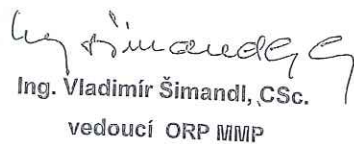 Ing. Vladimír Šimandl, CSc.
vedoucí ORP MMP